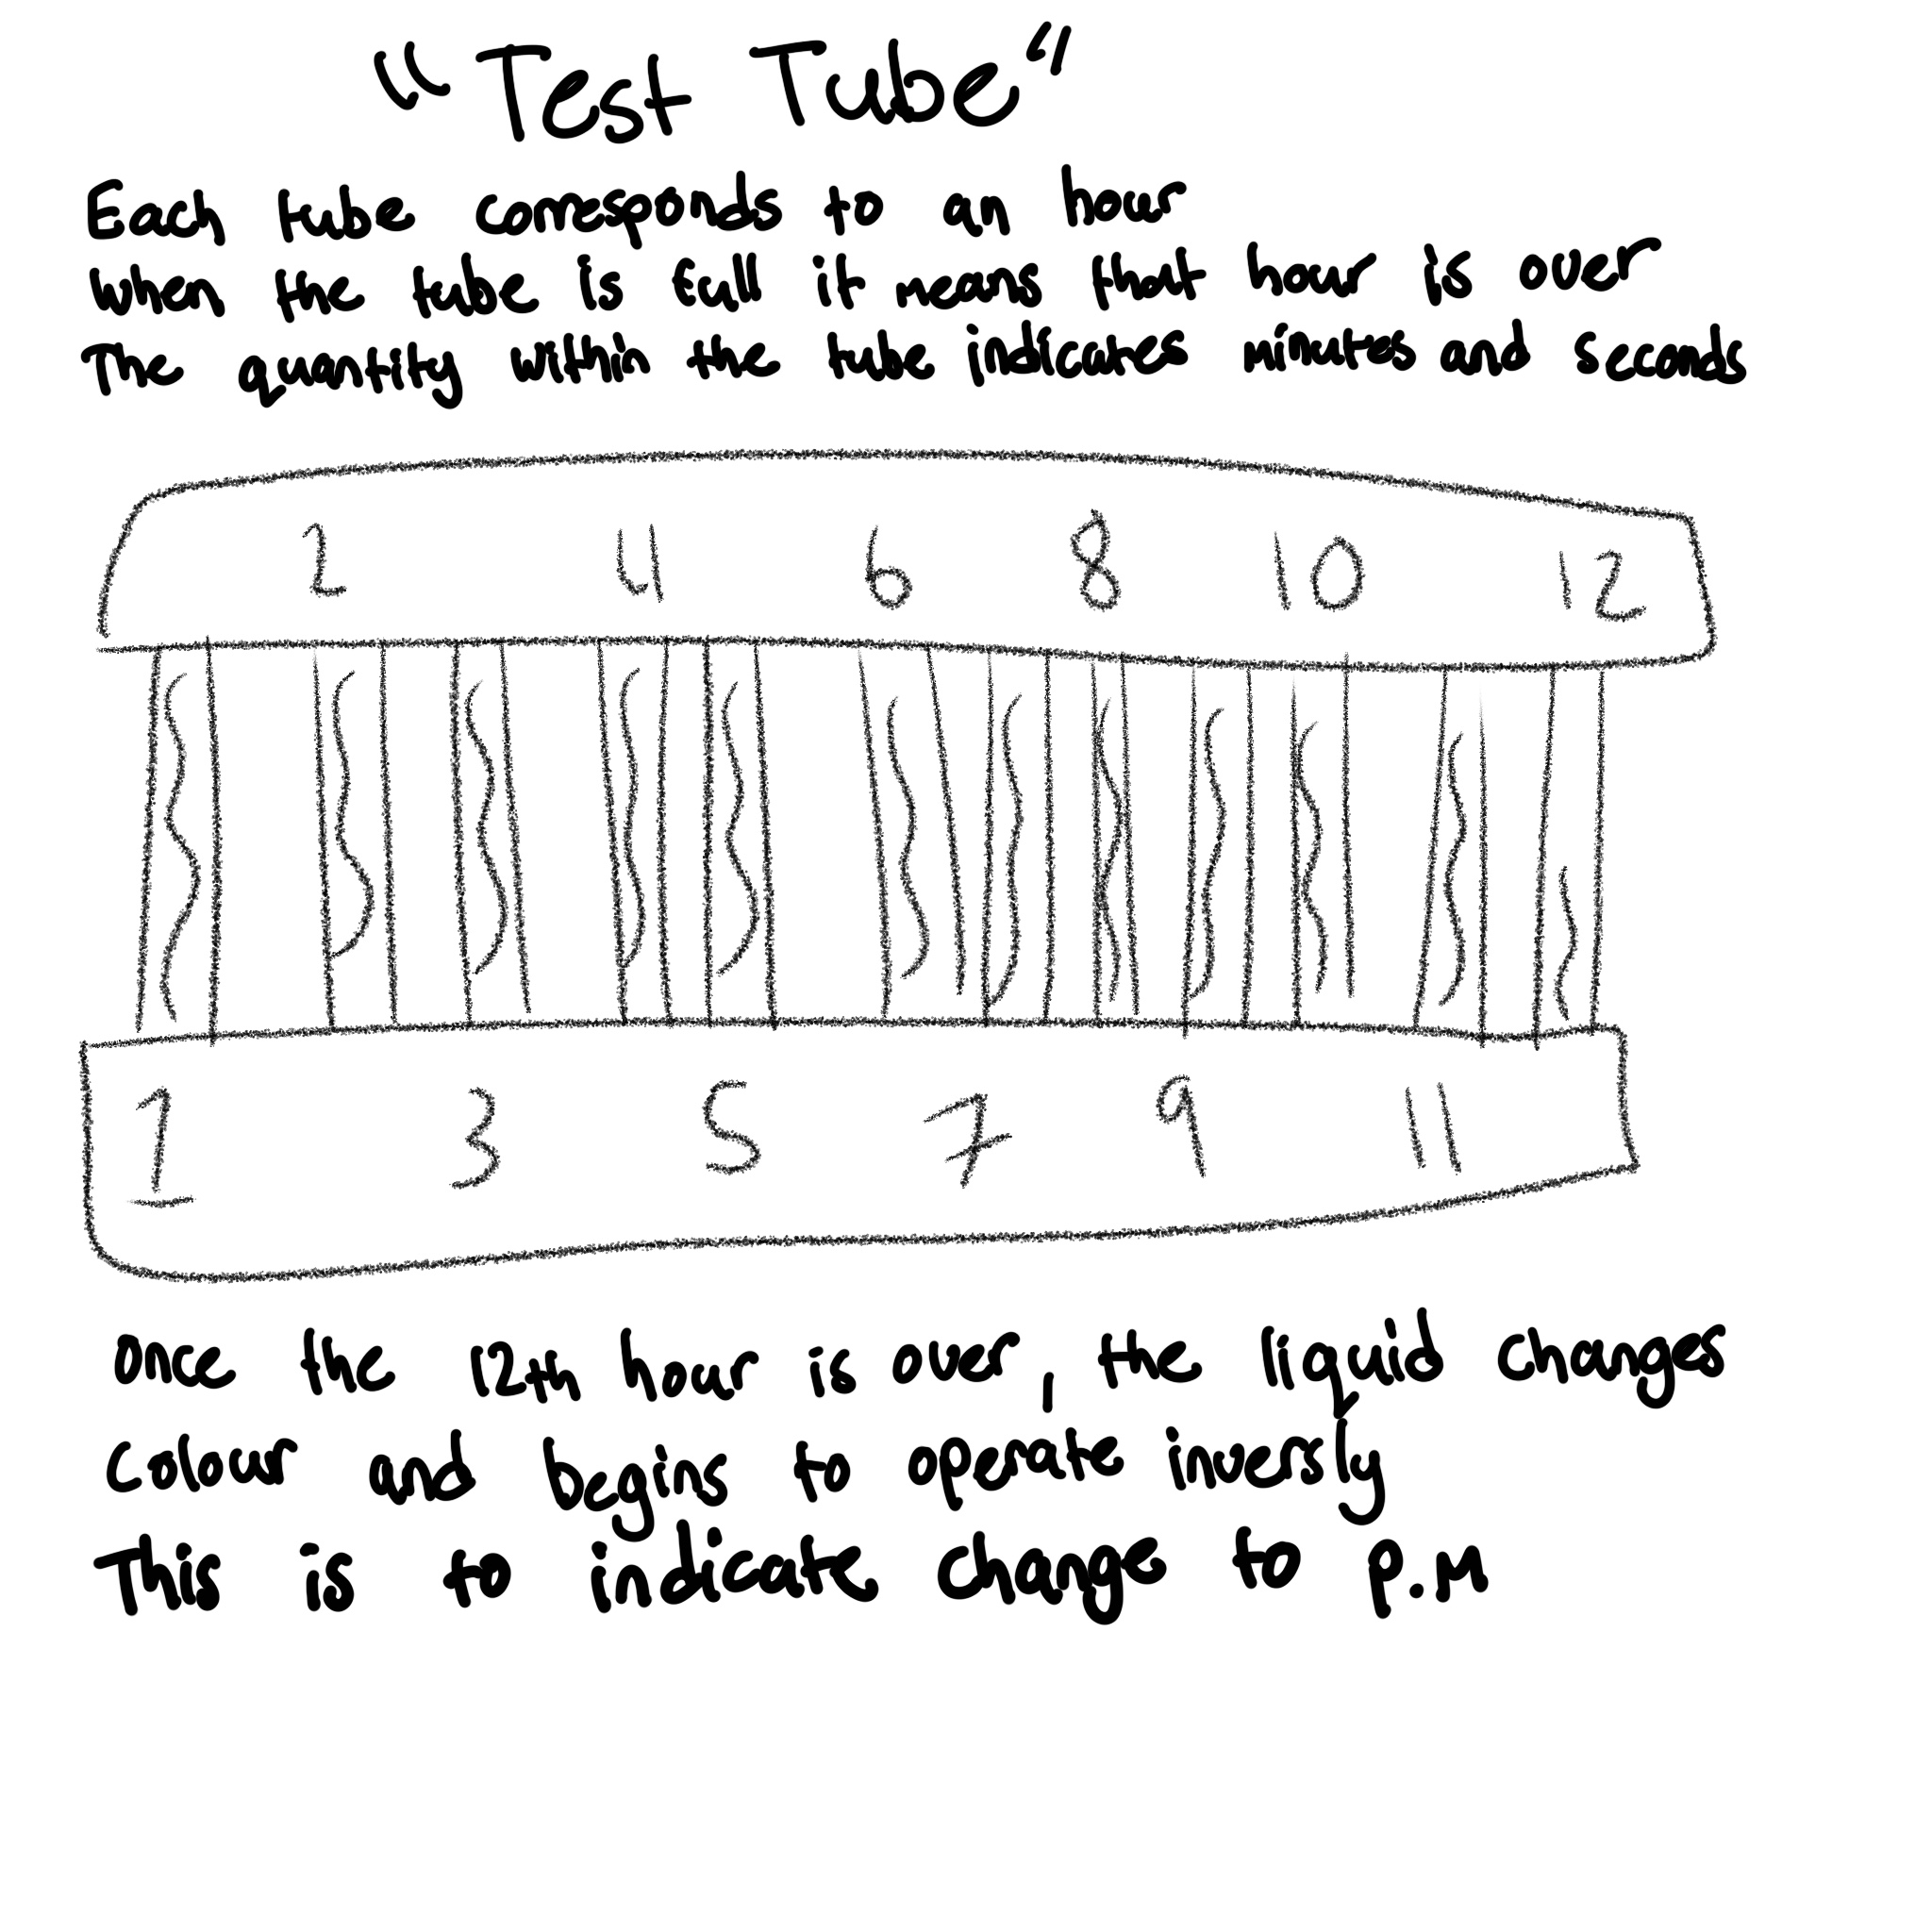 "Test Tube"
Each tube corresponds to an hour
When the tube is full it means that hour is over
The quantity within the tube indicates minutes and seconds
2 4 6 8 10 12
1 3 5 7 9 11
Once the 12th hour is over, the liquid changes
colour and begins to operate inversly
This is to indicate change to p.m